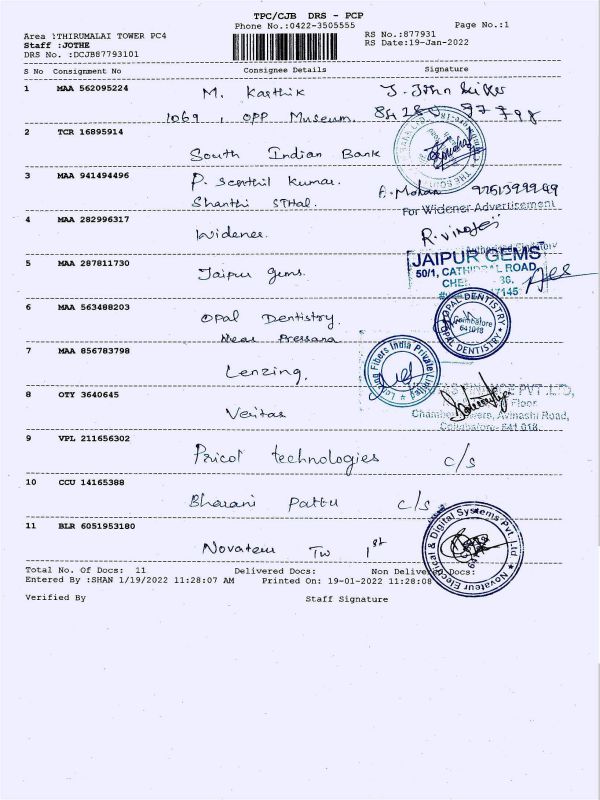 TPC/CJB DRS - PCP
Phone No.:0422-3505555 Page No.:1
Area :THIRUMALAI TOWER PC4 RS No.:877931
Staff :JOTHE RS Date:19-Jan-2022
DRS No. :DCJB87793101
S No Consignment No Consignee Details Signature
1 MAA 562095224 M. Karthik J. John
1069, OPP Museum.
2 TCR 16895914
South Indian Bank
3 MAA 941494496 P. Senthil Kumar. A. Mohan
Shanthi
For Widener Advertisement
4 MAA 282996317 Widener.
Authorised Signatory
JAIPUR GEMS
5 MAA 287811730 Jaipur gems. 50/1, CATHEDRAL ROAD,
6 MAA 563488203 Opal Dentistry. OPAL DENTISTRY Coimbatore 641018 OPAL DENTISTRY
Near
7 MAA 856783798 Lenzing. Lenzing Fibers India Private Limited
8 OTY 3640645 PVT .LTD,
Floor
Veritas Avinashi Road,
Coimbatore- 641 018.
9 VPL 211656302
Pricol technologies c/s
10 CCU 14165388
Bharani Pattu c/s
11 BLR 6051953180
Novateur 1st Novateur Electrical & Digital Systems Pvt. Ltd
Total No. Of Docs: 11 Delivered Docs: Non Delivered Docs:
Entered By :SHAN 1/19/2022 11:28:07 AM Printed On: 19-01-2022 11:28:08
Verified By Staff Signature